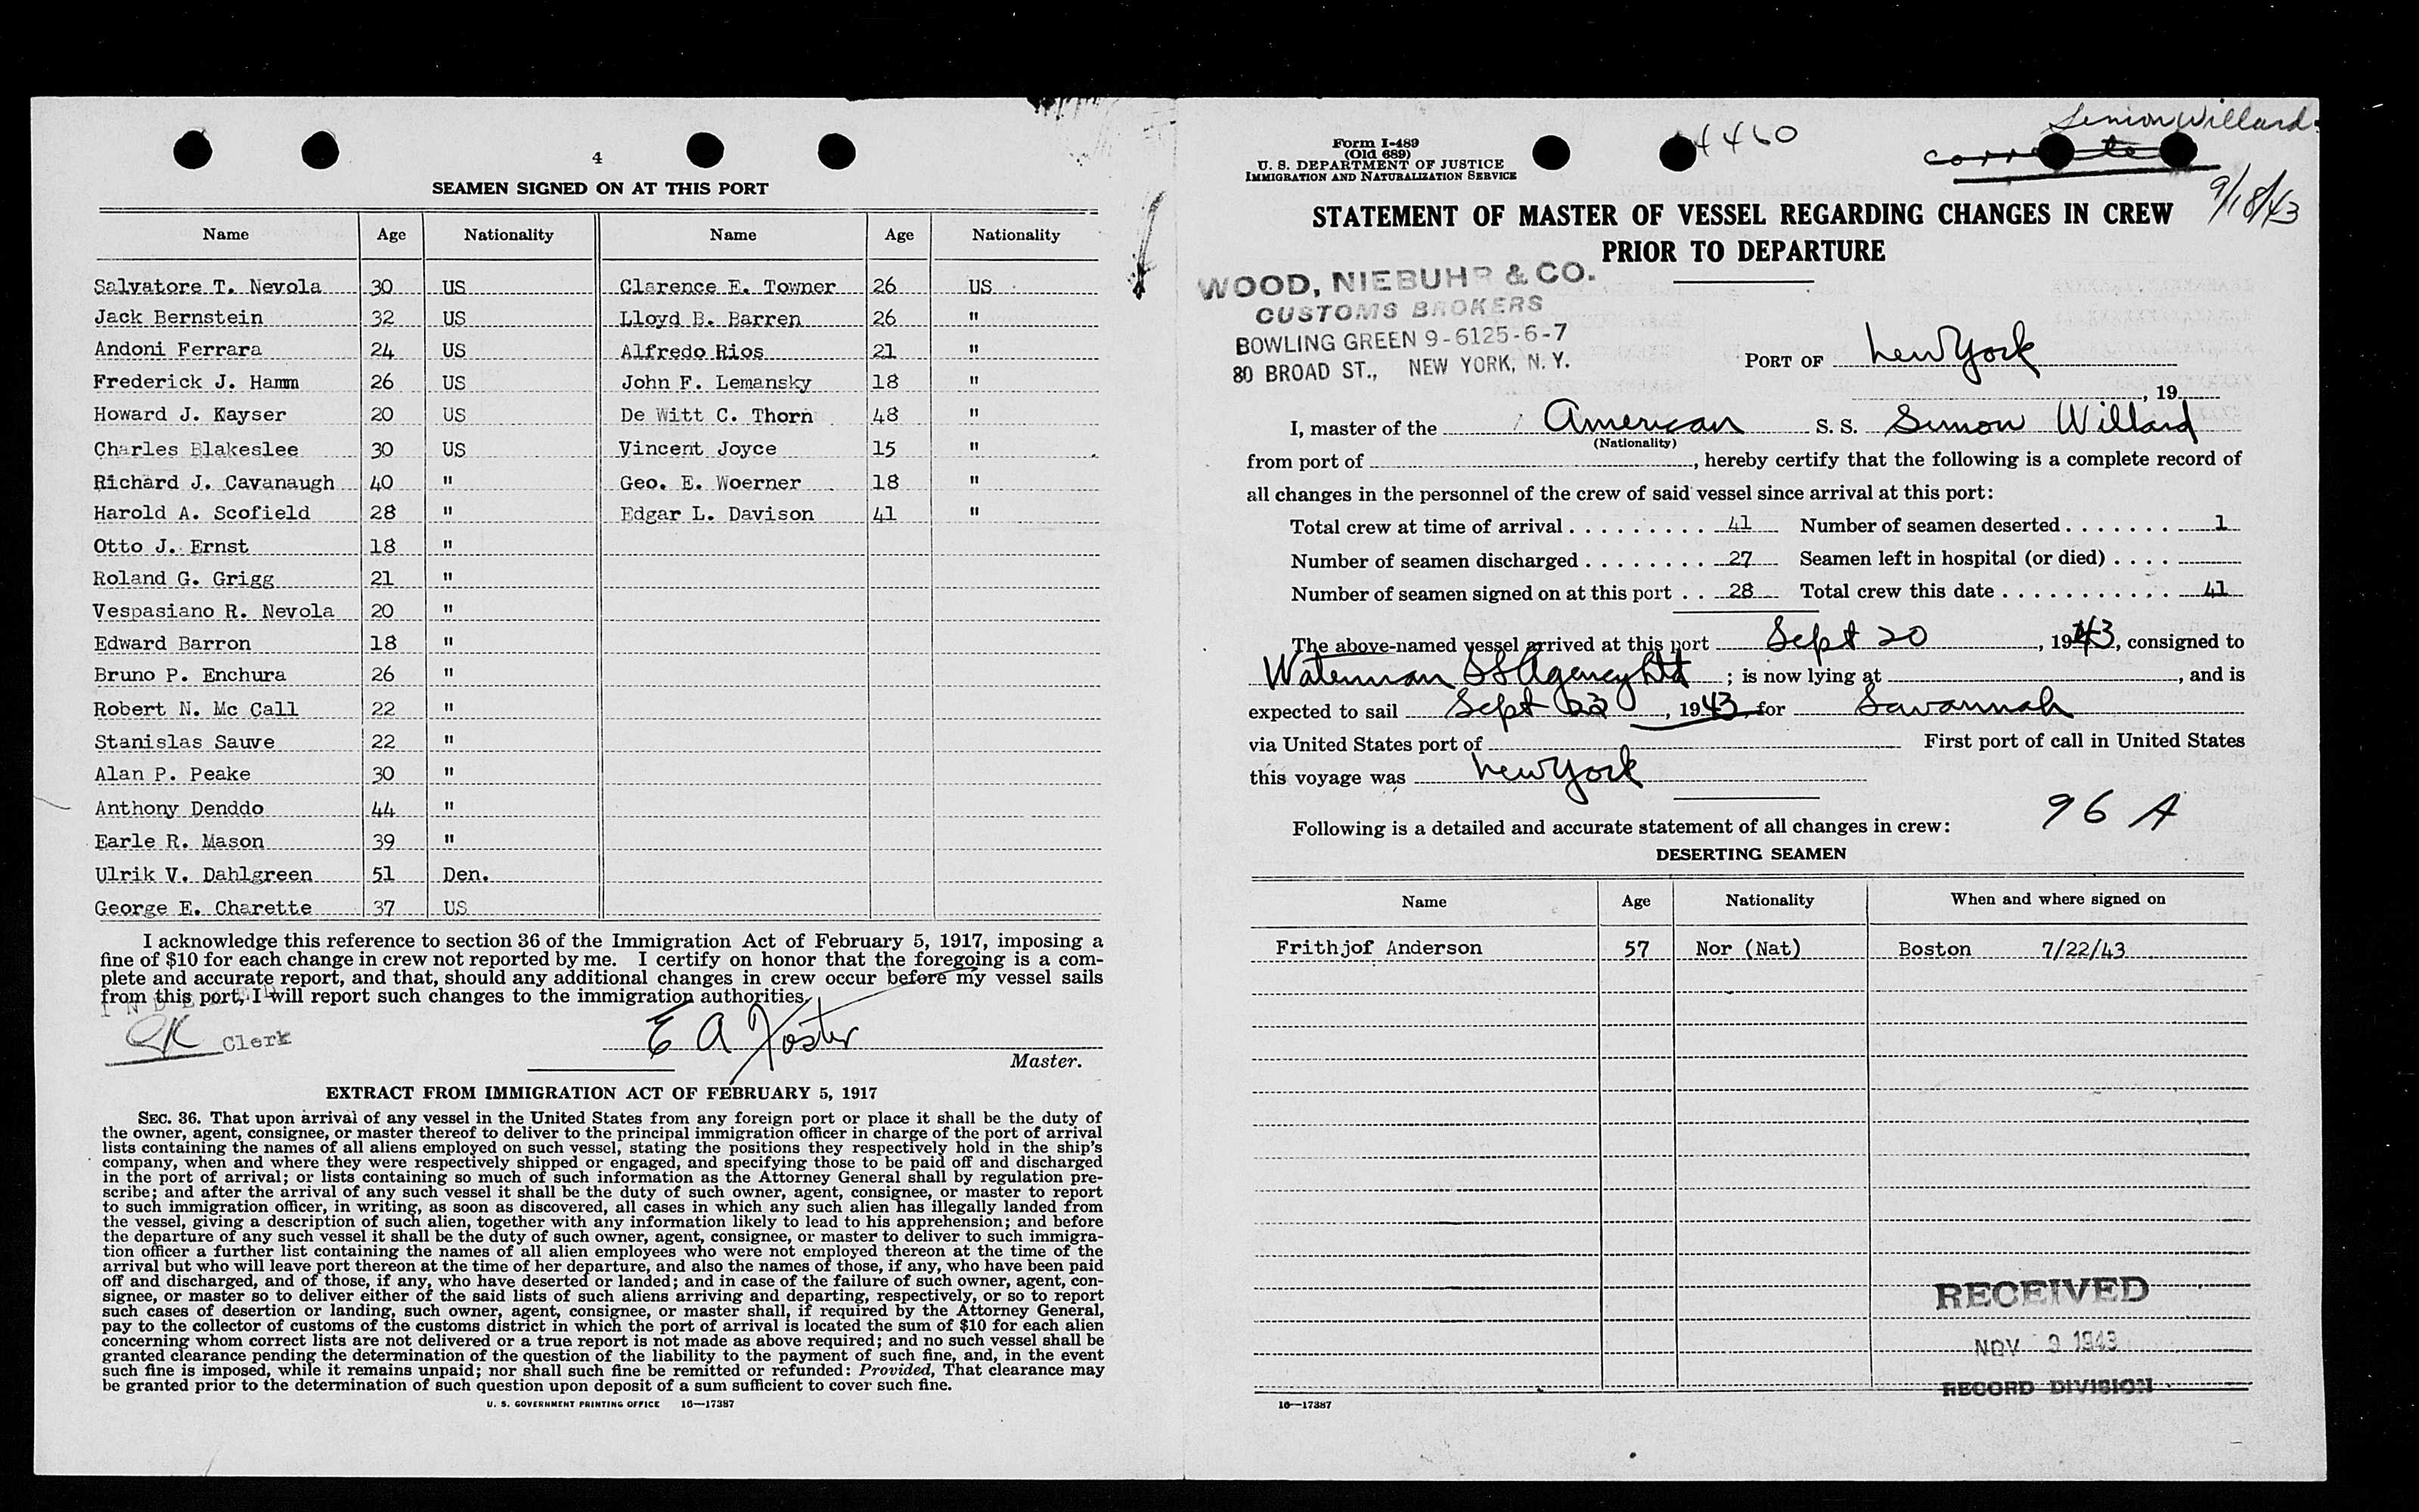 4
SEAMEN SIGNED ON AT THIS PORT
Name Age Nationality Name Age Nationality
Salvatore T. Nevola 30 US Clarence E. Towner 26 US
Jack Bernstein 32 US Lloyd B. Barren 26 "
Andoni Ferrara 24 US Alfredo Rios 21 "
Frederick J. Hamm 26 US John F. Lemansky 18 "
Howard J. Kayser 20 US De Witt C. Thorn 48 "
Charles Blakeslee 30 US Vincent Joyce 15 "
Richard J. Cavanaugh 40 " Geo. E. Woerner 18 "
Harold A. Scofield 28 " Edgar L. Davison 41 "
Otto J. Ernst 18 "
Roland G. Grigg 21 "
Vespasiano R. Nevola 20 "
Edward Barron 18 "
Bruno P. Enchura 26 "
Robert N. Mc Call 22 "
Stanislas Sauve 22 "
Alan P. Peake 30 "
Anthony Denddo 44 "
Earle R. Mason 39 "
Ulrik V. Dahlgreen 51 Den.
George E. Charette 37 US
I acknowledge this reference to section 36 of the Immigration Act of February 5, 1917, imposing a
fine of $10 for each change in crew not reported by me. I certify on honor that the foregoing is a com-
plete and accurate report, and that, should any additional changes in crew occur before my vessel sails
from this port, I will report such changes to the immigration authorities.
Clerk
E A Foster
Master.
EXTRACT FROM IMMIGRATION ACT OF FEBRUARY 5, 1917
SEC. 36. That upon arrival of any vessel in the United States from any foreign port or place it shall be the duty of
the owner, agent, consignee, or master thereof to deliver to the principal immigration officer in charge of the port of arrival
lists containing the names of all aliens employed on such vessel, stating the positions they respectively hold in the ship's
company, when and where they were respectively shipped or engaged, and specifying those to be paid off and discharged
in the port of arrival; or lists containing so much of such information as the Attorney General shall by regulation pre-
scribe; and after the arrival of any such vessel it shall be the duty of such owner, agent, consignee, or master to report
to such immigration officer, in writing, as soon as discovered, all cases in which any such alien has illegally landed from
the vessel, giving a description of such alien, together with any information likely to lead to his apprehension; and before
the departure of any such vessel it shall be the duty of such owner, agent, consignee, or master to deliver to such immigra-
tion officer a further list containing the names of all alien employees who were not employed thereon at the time of the
arrival but who will leave port thereon at the time of her departure, and also the names of those, if any, who have been paid
off and discharged, and of those, if any, who have deserted or landed; and in case of the failure of such owner, agent, con-
signee, or master so to deliver either of the said lists of such aliens arriving and departing, respectively, or so to report
such cases of desertion or landing, such owner, agent, consignee, or master shall, if required by the Attorney General,
pay to the collector of customs of the customs district in which the port of arrival is located the sum of $10 for each alien
concerning whom correct lists are not delivered or a true report is not made as above required; and no such vessel shall be
granted clearance pending the determination of the question of the liability to the payment of such fine, and, in the event
such fine is imposed, while it remains unpaid; nor shall such fine be remitted or refunded: Provided, That clearance may
be granted prior to the determination of such question upon deposit of a sum sufficient to cover such fine.
U. S. GOVERNMENT PRINTING OFFICE 16—17387
Form I-489
(Old 689)
U. S. DEPARTMENT OF JUSTICE
IMMIGRATION AND NATURALIZATION SERVICE
4460
Simon Willard
9/18/43
STATEMENT OF MASTER OF VESSEL REGARDING CHANGES IN CREW
PRIOR TO DEPARTURE
WOOD, NIEBUHR & CO.
CUSTOMS BROKERS
BOWLING GREEN 9-6125-6-7
80 BROAD ST., NEW YORK, N. Y.
PORT OF New York
, 19
I, master of the American S. S. Simon Willard
(Nationality)
from port of , hereby certify that the following is a complete record of
all changes in the personnel of the crew of said vessel since arrival at this port:
Total crew at time of arrival . . . . . . . . . 41 Number of seamen deserted . . . . . . . 1
Number of seamen discharged . . . . . . . . 27 Seamen left in hospital (or died) . . . .
Number of seamen signed on at this port . . 28 Total crew this date . . . . . . . . . . . 41
The above-named vessel arrived at this port Sept 20, 1943, consigned to
Waterman SS Agency Ltd ; is now lying at , and is
expected to sail Sept 22, 1943, for Savannah
via United States port of First port of call in United States
this voyage was New York
96 A
Following is a detailed and accurate statement of all changes in crew:
DESERTING SEAMEN
Name Age Nationality When and where signed on
Frithjof Anderson 57 Nor (Nat) Boston 7/22/43
RECEIVED
NOV 9 1943
RECORD DIVISION
16—17387